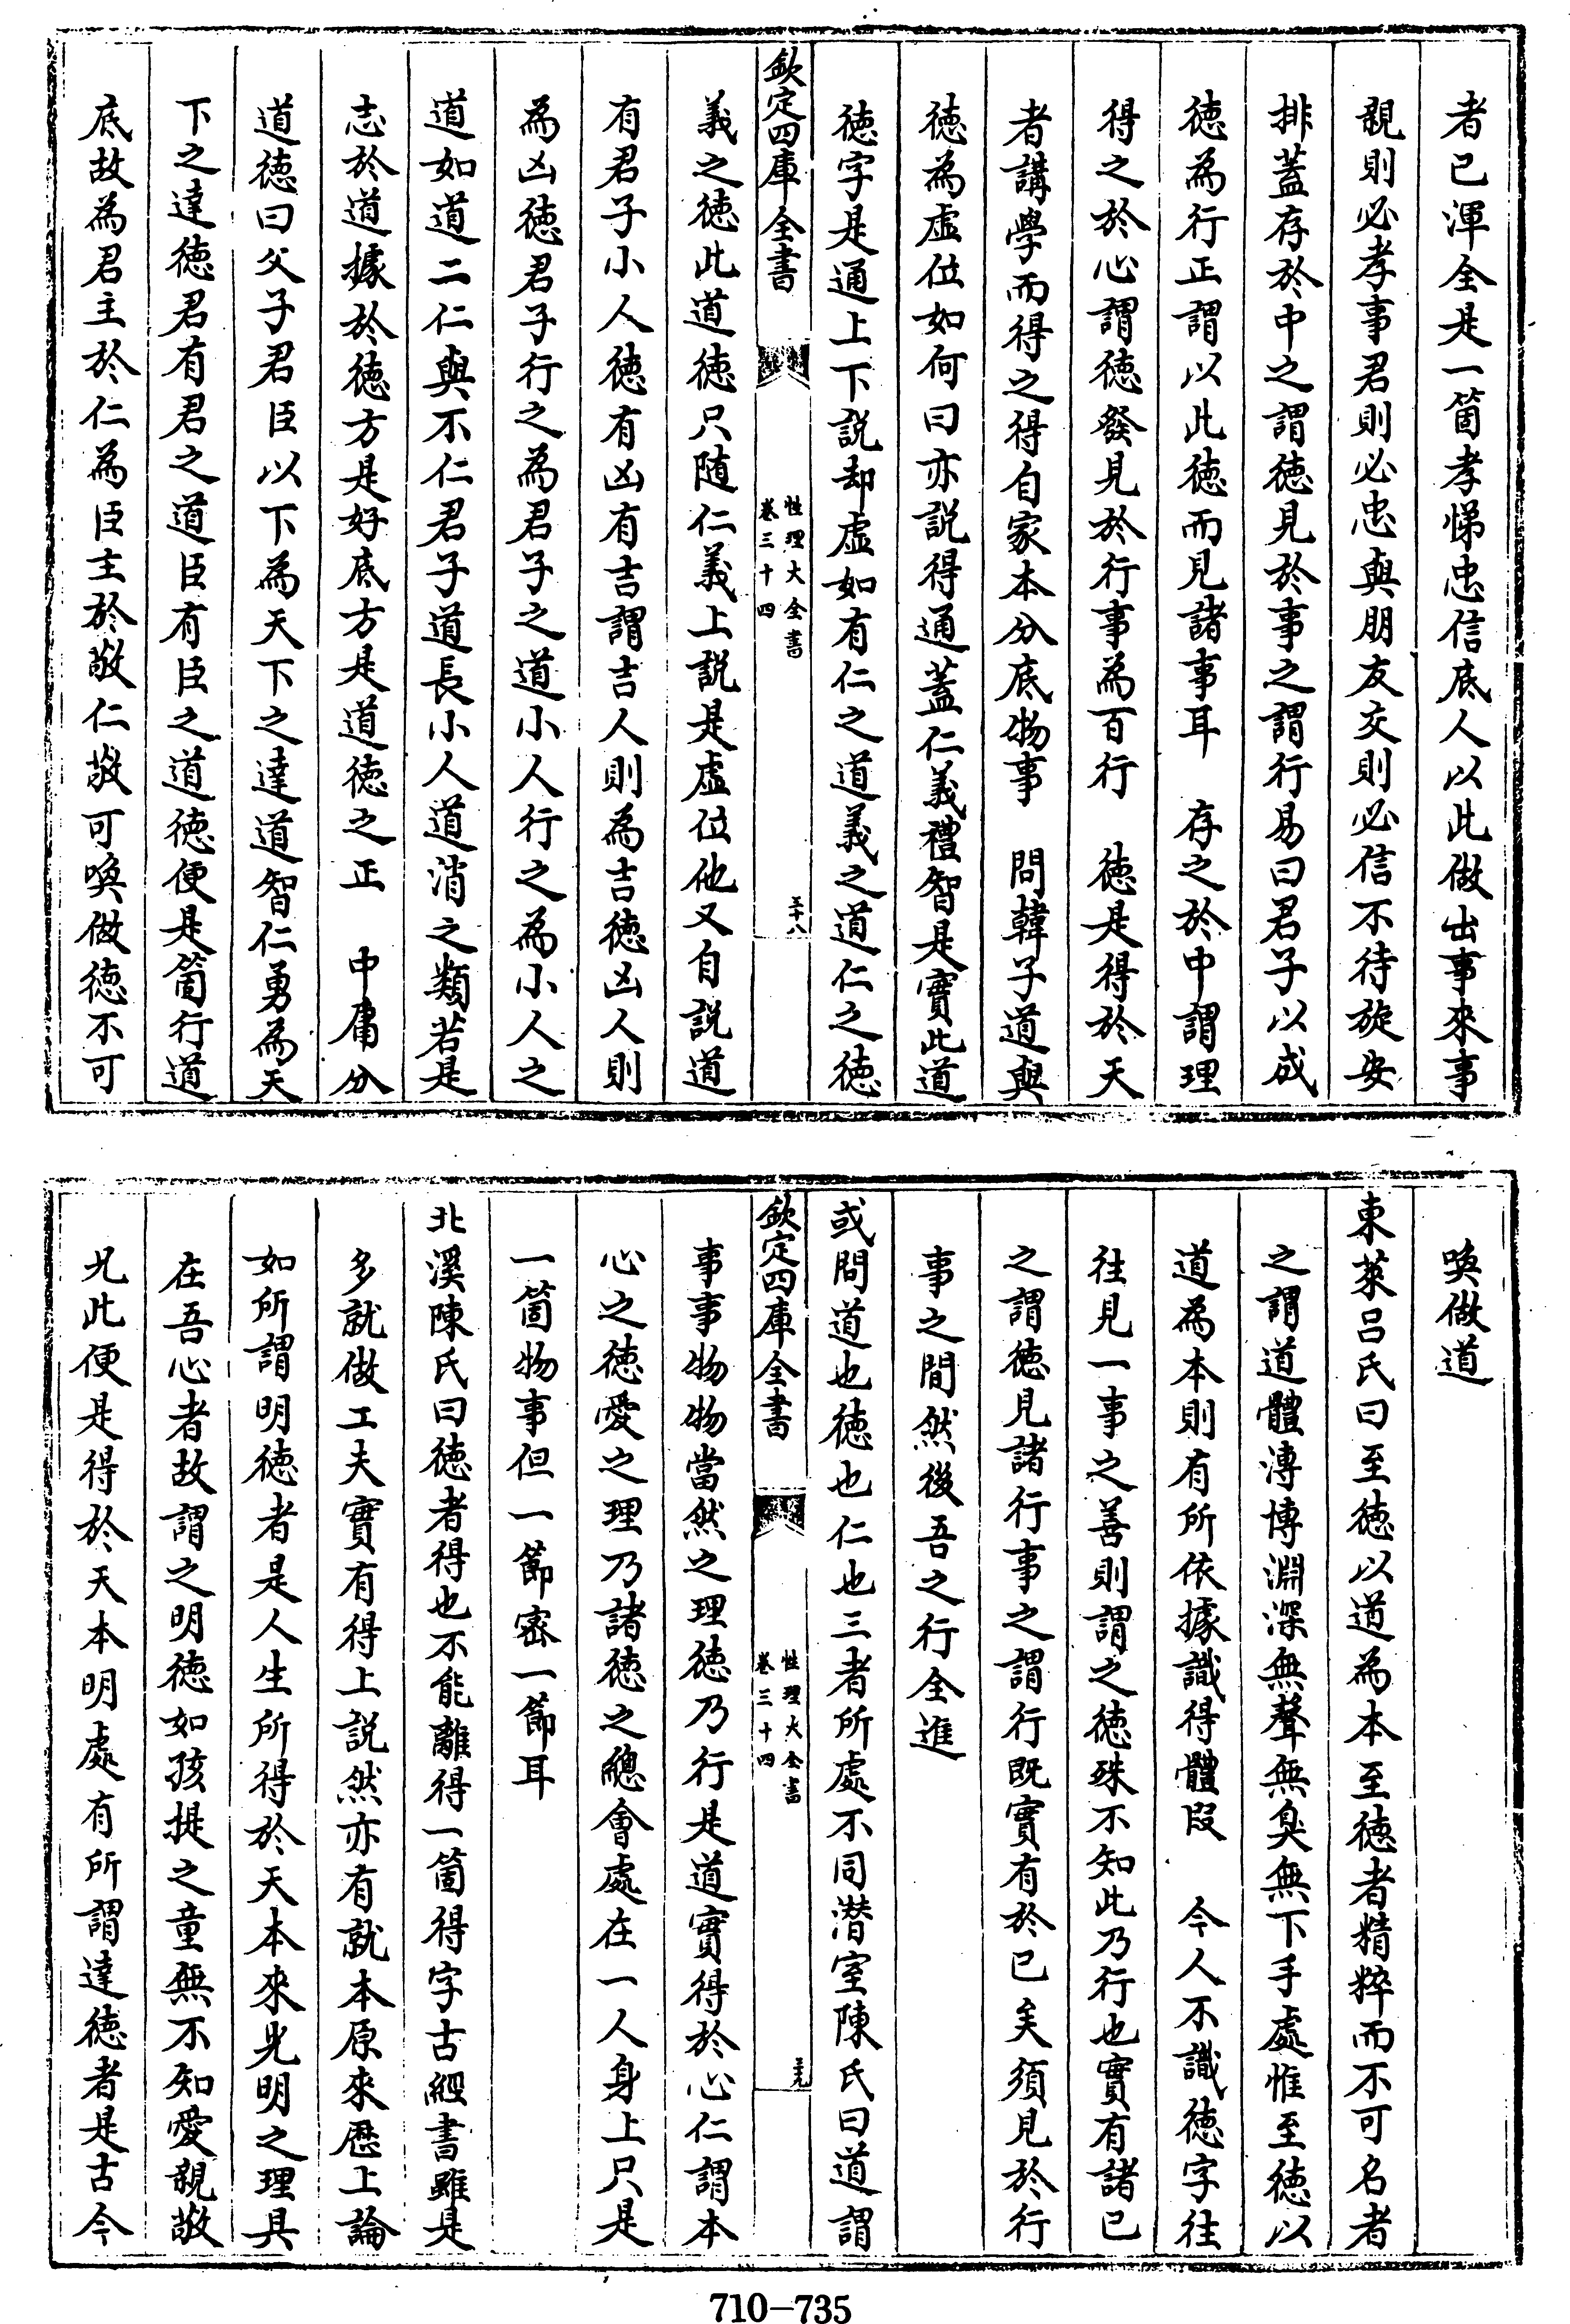 者已渾全是一箇孝悌忠信底人以此做出事來事
親則必孝事君則必忠與朋友交則必信不待旋安
排蓋存於中之謂徳見於事之謂行易曰君子以成
徳為行正謂以此徳而見諸事耳 存之於中謂理
得之於心謂徳發見於行事為百行 徳是得於天
者講學而得之得自家本分底物事 問韓子道與
徳為虛位如何曰亦説得通蓋仁義禮智是實此道
徳字是通上下説却虛如有仁之道義之道仁之徳
欽定四庫全書
性理大全書
卷三十四
三十八
義之徳此道徳只随仁義上説是虛位他又自説道
有君子小人徳有凶有吉謂吉人則為吉徳凶人則
為凶徳君子行之為君子之道小人行之為小人之
道如道二仁與不仁君子道長小人道消之類若是
志於道據於徳方是好底方是道徳之正 中庸分
道徳曰父子君臣以下為天下之達道智仁勇為天
下之達徳君有君之道臣有臣之道徳便是箇行道
底故為君主於仁為臣主於敬仁敬可喚做徳不可
喚做道
東萊呂氏曰至徳以道為本至徳者精粹而不可名者
之謂道體溥博淵深無聲無臭無下手處惟至徳以
道為本則有所依據識得體段 今人不識徳字往
往見一事之善則謂之徳殊不知此乃行也實有諸已
之謂徳見諸行事之謂行既實有於已矣須見於行
事之間然後吾之行全進
或問道也徳也仁也三者所處不同潜室陳氏曰道謂
欽定四庫全書
性理大全書
卷三十四
三十九
事事物物當然之理徳乃行是道實得於心仁謂本
心之徳愛之理乃諸徳之總會處在一人身上只是
一箇物事但一節宻一節耳
北溪陳氏曰徳者得也不能離得一箇得字古經書雖是
多就做工夫實有得上説然亦有就本原來歴上論
如所謂明徳者是人生所得於天本來光明之理具
在吾心者故謂之明徳如孩提之童無不知愛親敬
兄此便是得於天本明處有所謂達徳者是古今
710-735